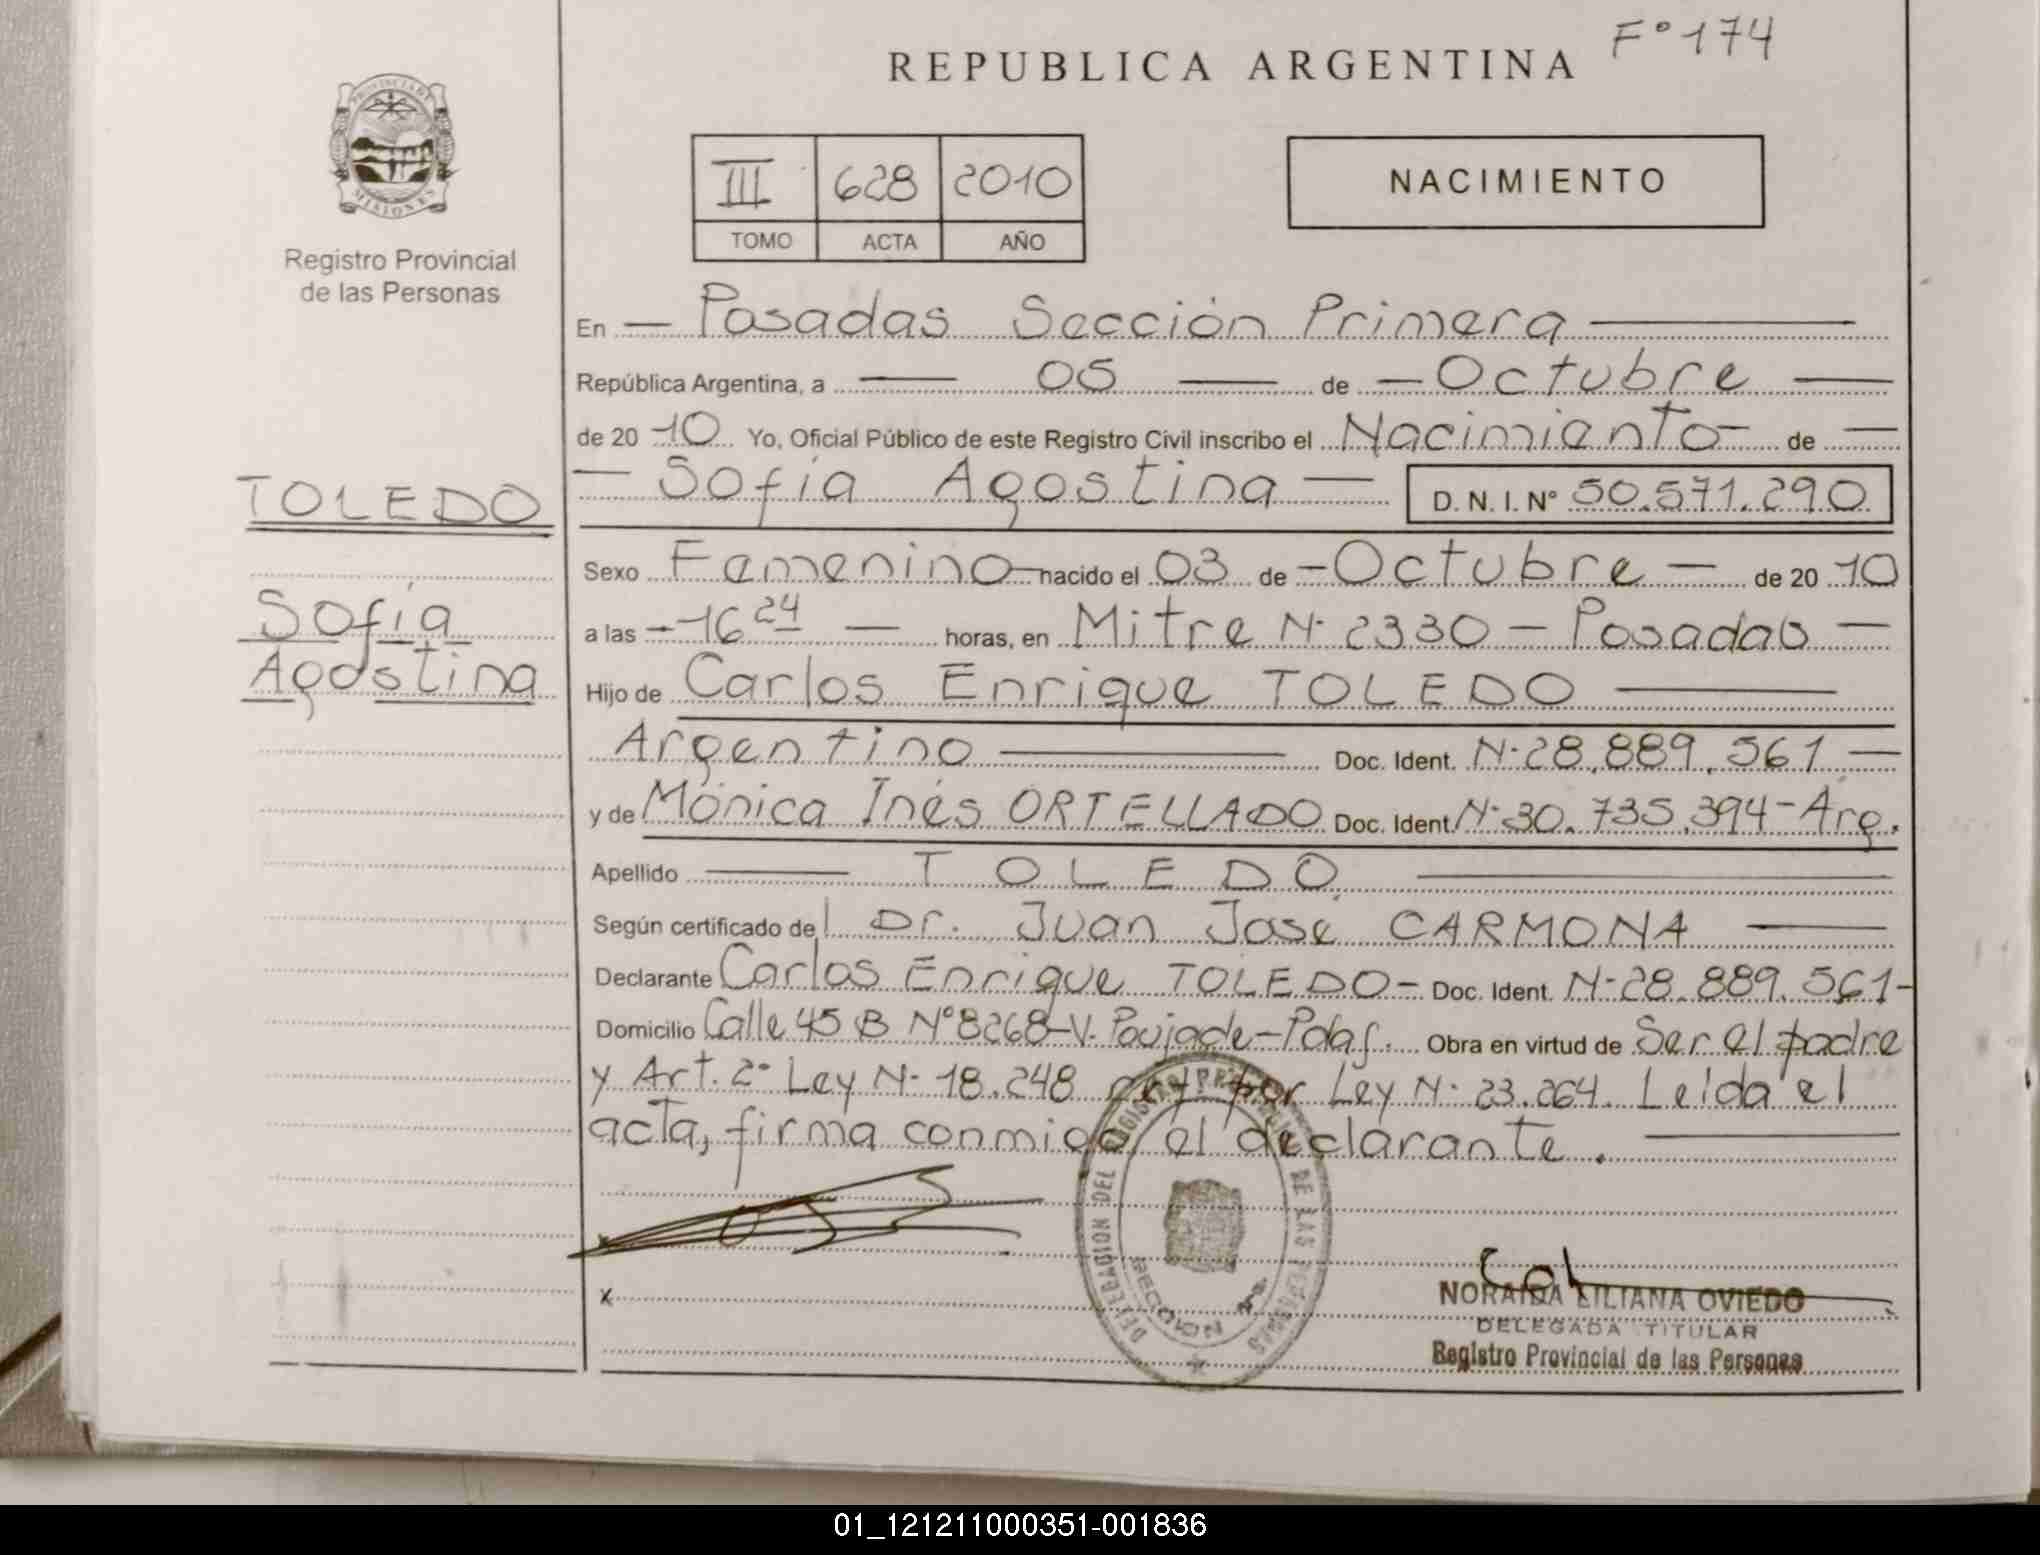 F° 174
REPUBLICA ARGENTINA
PROVINCIA DE
MISIONES
Registro Provincial
de las Personas
III 628 2010
TOMO ACTA AÑO
NACIMIENTO
En — Posadas Sección Primera —
República Argentina, a — 05 — de — Octubre —
de 20 10 Yo, Oficial Público de este Registro Civil inscribo el Nacimiento — de —
— Sofía Agostina — D. N. I. N° 50.571.290
TOLEDO
Sofía
Agostina
Sexo Femenino — nacido el 03 de — Octubre — de 20 10
a las — 16 24 — horas, en Mitre N° 2330 — Posadas —
Hijo de Carlos Enrique TOLEDO —
Argentino — Doc. Ident. N° 28.889.561 —
y de Mónica Inés ORTELLADO Doc. Ident. N° 30.735.394 - Arg.
Apellido — TOLEDO —
Según certificado del Dr. Juan José CARMONA —
Declarante Carlos Enrique TOLEDO — Doc. Ident. N° 28.889.561 -
Domicilio Calle 45 B N° 8268 - V. Poujade - Pdas. Obra en virtud de Ser el padre
y Art. 2° Ley N° 18.248 por Ley N° 23.264. Leída el
acta, firma conmigo, el declarante. —
DELEGACION DEL REGISTRO PROVINCIAL DE LAS PERSONAS
SECCION 1ra.
x
NORAIDA LILIANA OVIEDO
DELEGADA TITULAR
Registro Provincial de las Personas
01_121211000351-001836